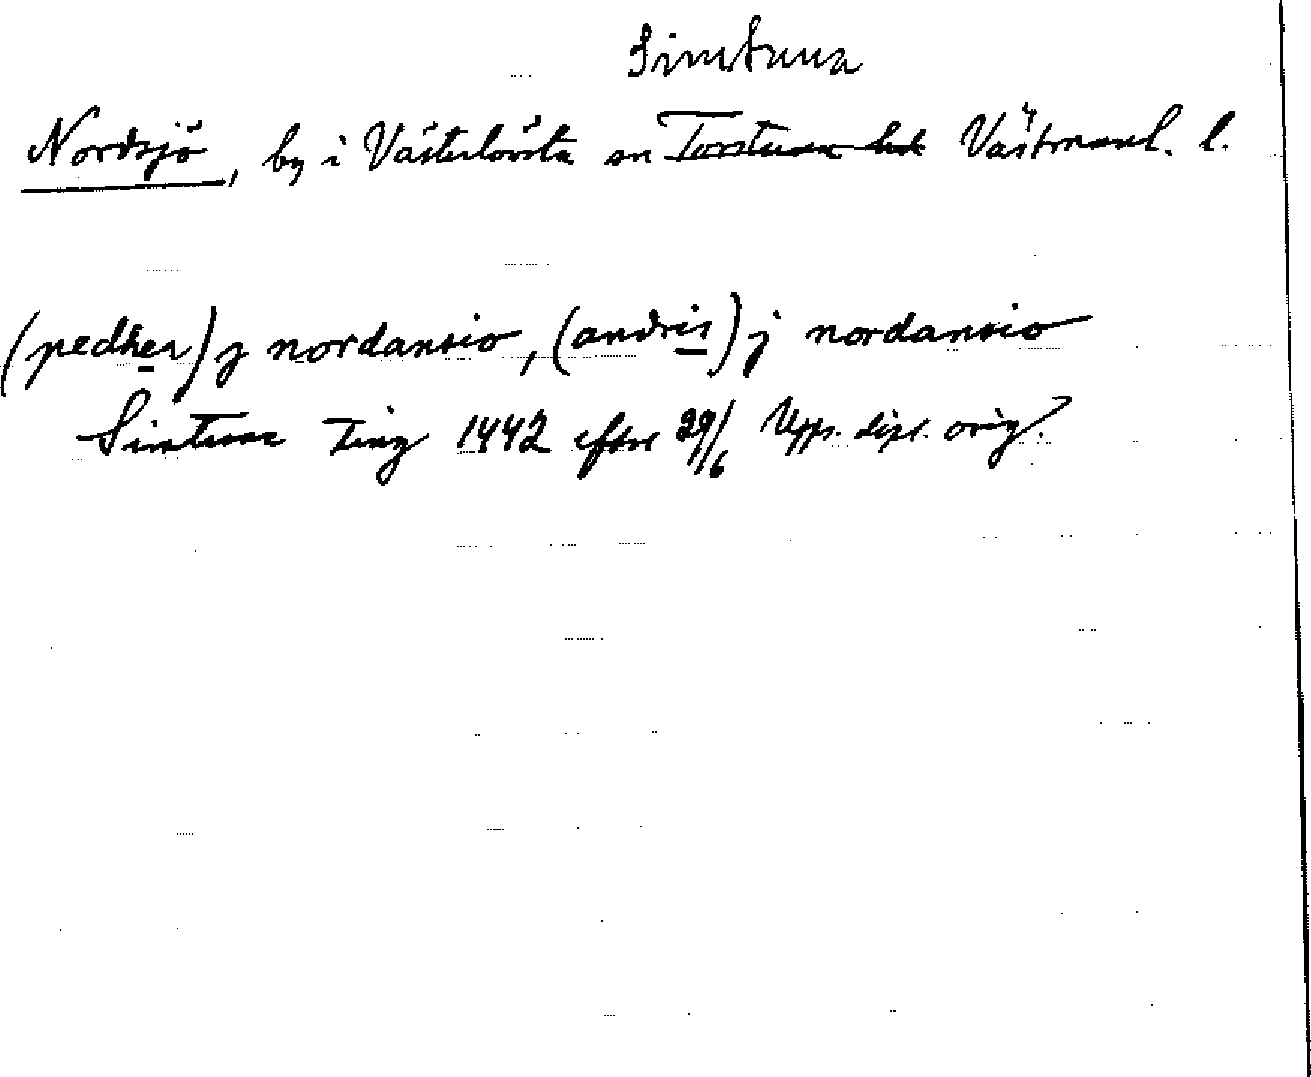 Simtuna
Nordsjö, by i Västerlövsta sn Torstuna hd Västmanl. l.
(pedher) j nordansio, (andris) j nordansio
Simtuna Ting 1442 efter 29/6 Upps. dipl. orig.